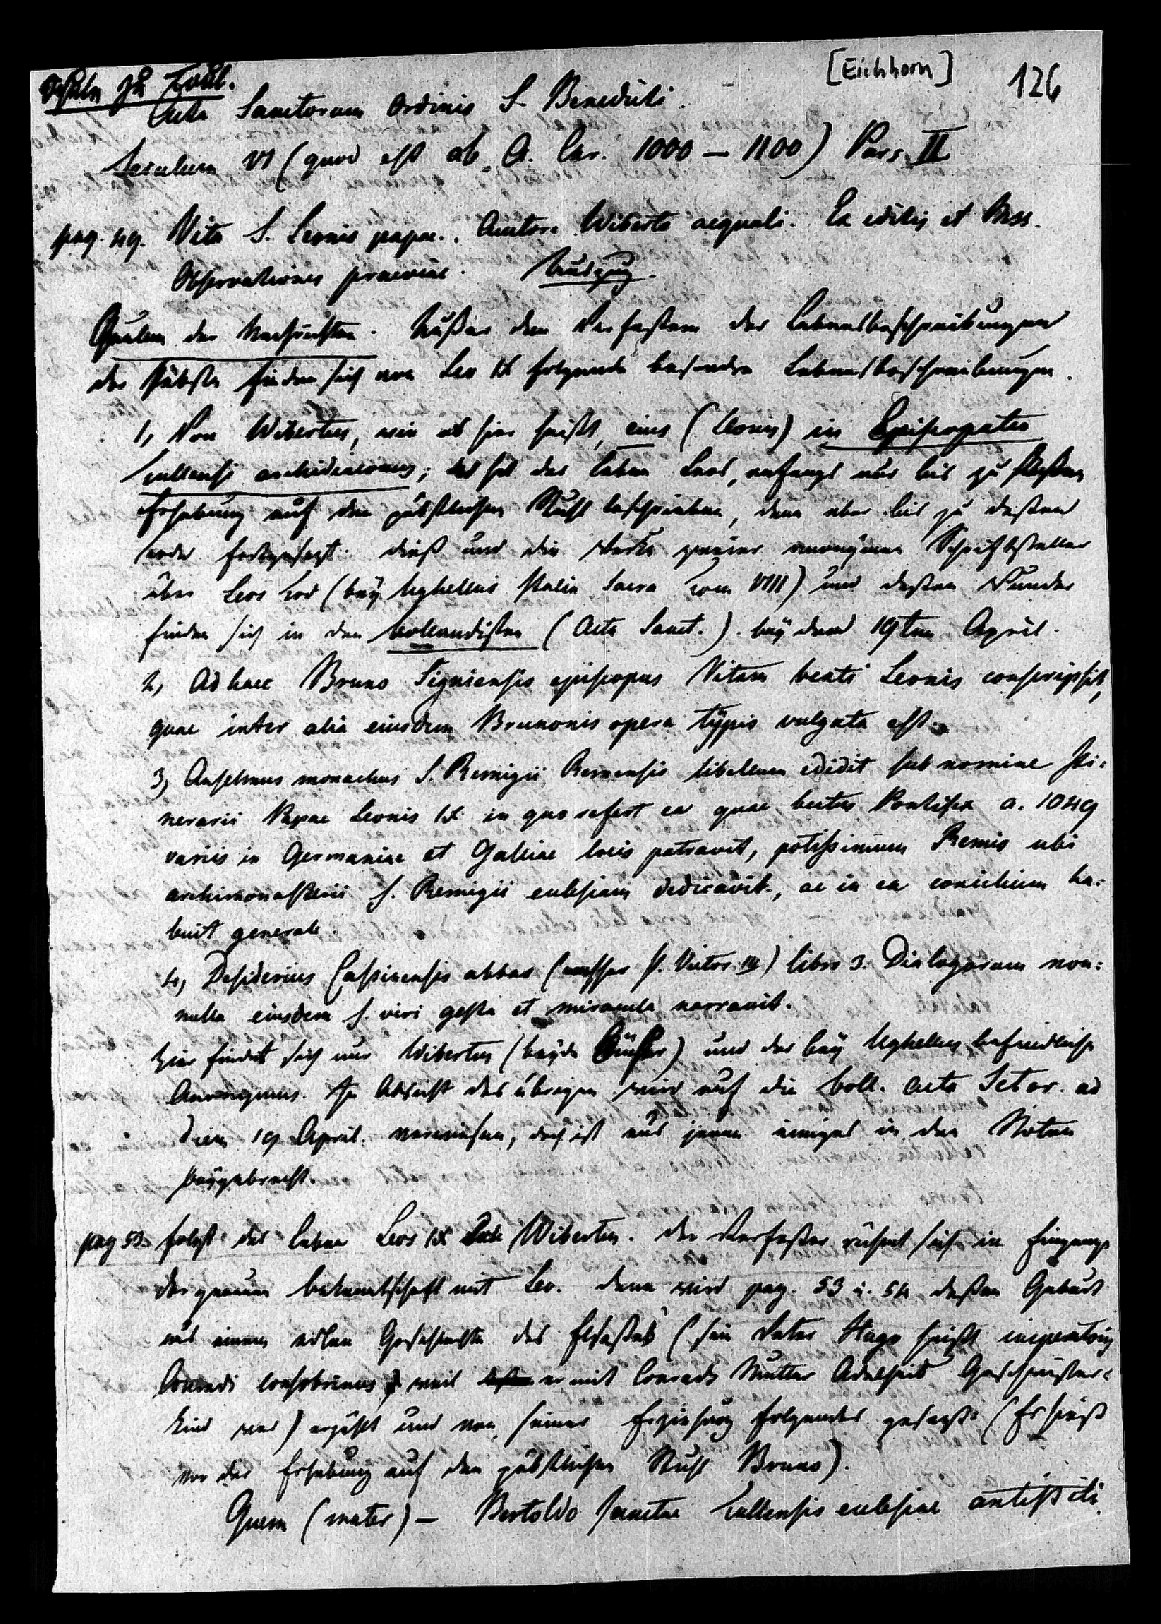 [Eichhorn] 126
Schule zu Toul.
Acta Sanctorum Ordinis S. Benedicti.
Seculum VI (quod est ab A. Chr. 1000 – 1100) Pars II
pag. 49. Vita S. Leonis papae. Auctore Wiberto aequali. Ex editis et Mss.
Observationes praeviae. Auszug.
Quellen der Nachrichten. Außer den Verfaßern der Lebensbeschreibungen
der Päbste finden sich von Leo IX folgende besondre Lebensbeschreibungen.
1, Von Wibertus, wie es hier heißt, eius (Leonis) in Episcopatu
Tullensi archidiaconus; er hat das Leben Leos, anfangs nur bis zu deßen
Erhebung auf den päbstlichen Stuhl beschrieben, dann aber bis zu deßen
Tode fortgesetzt. dieß und die Werke zweier anonymer Schriftsteller
über Leos Tod (bey Ughellus Italia Sacra Tom VIII) und deßen Wunder
finden sich in den Bollandisten (Acta Sanct.) bey dem 19ten April.
2, Ad haec Bruno Signiensis episcopus Vitam beati Leonis conscripsit,
quae inter alia eiusdem Brunonis opera typis vulgata est.
3, Anselmus monachus S. Remigii Remensis libellum edidit sub nomine Iti-
nerarii Papae Leonis IX in quo refert ea quae beatus Pontifex a. 1049
variis in Germaniae et Galliae locis patravit, potissimum Remis ubi
archimonasterii S. Remigii eclesiam dedicavit, ac in ea concilium ha-
buit generale.
4, Desiderius Cassinensis abbas (nachher P. Victor III) libro 3. Dialogorum non-
nulla eiusdem S. viri gesta et miracula narravit.
Hier findet sich nur Wibertus (beyde Bücher) und der bey Ughellus befindliche
Anonymus. In Absicht des übrigen wird auf die Boll. Acta Sctor. ad
diem 19 April. verwiesen, doch ist aus jenen einiges in den Noten
beygebracht.
pag 53. folgt das Leben Leos IX Wibertus. Der Verfaßer rühmt sich im Eingange
der genauen bekanntschaft mit Leo. Dann wird pag. 53 u. 54 deßen Geburt
aus einem edlen Geschlechte des Elsaßes (sein Vater Hugo heißt imperatoris
Conradi consobrinus, weil er mit Conrads Mutter Adelheid Geschwister-
kind war) erzählt und von seiner Erziehung folgendes gesagt: (Er hieß
vor der Erhebung auf den päbstlichen Stuhl Bruno).
Quem (mater) – Bertoldo sanctae Tullensis eclesiae antistiti